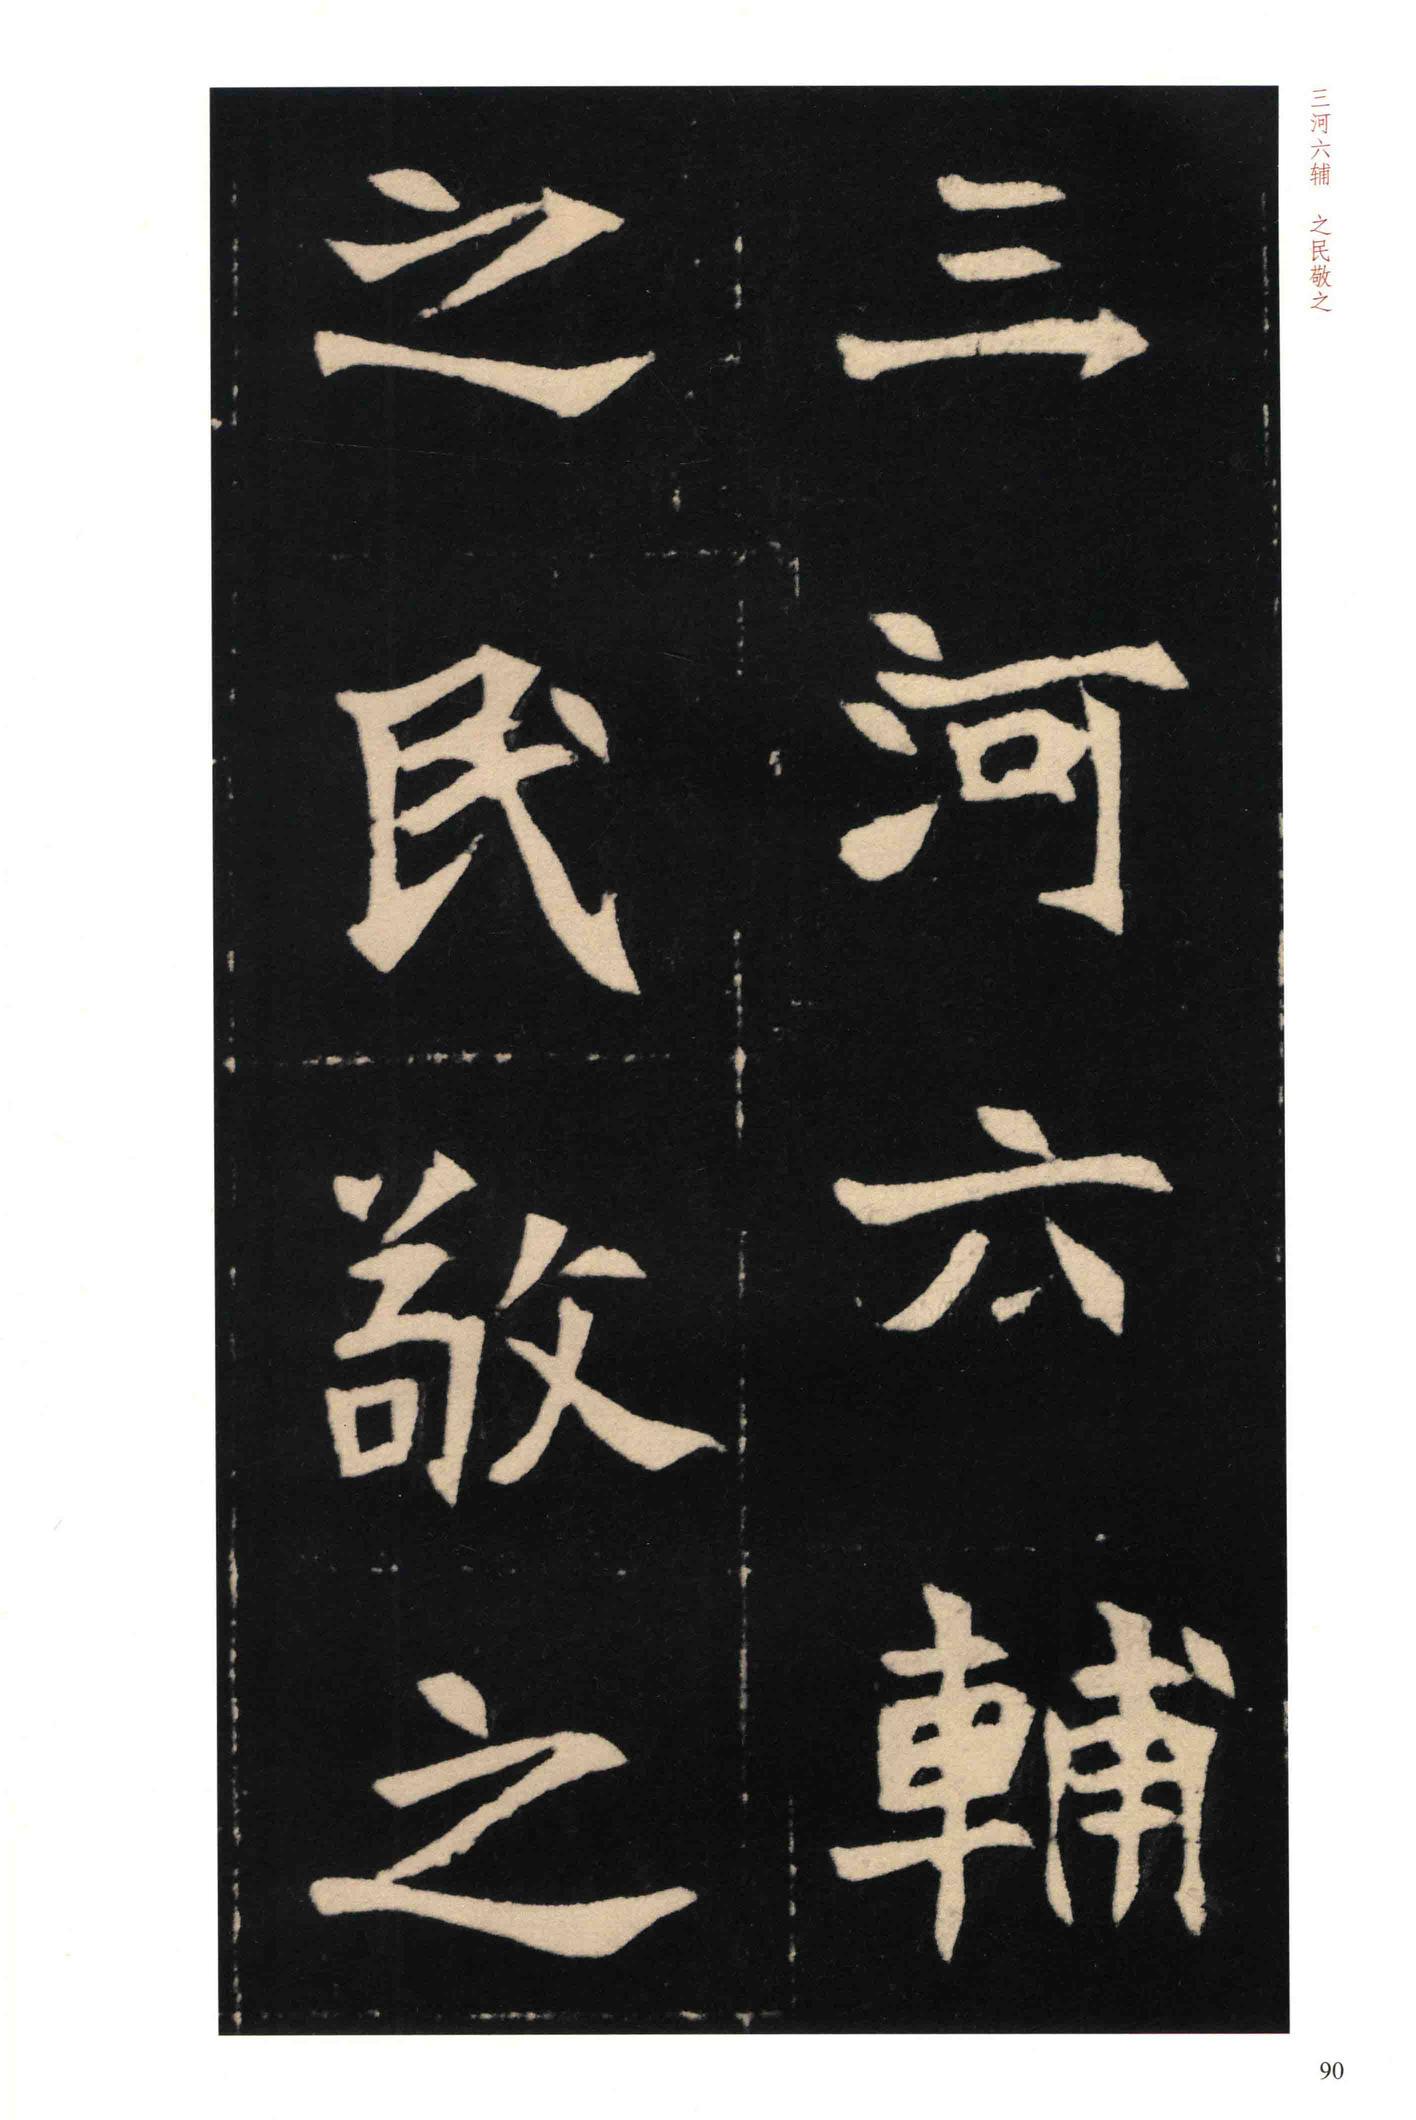 三河六辅　之民敬之
三河六輔
之民敬之
90